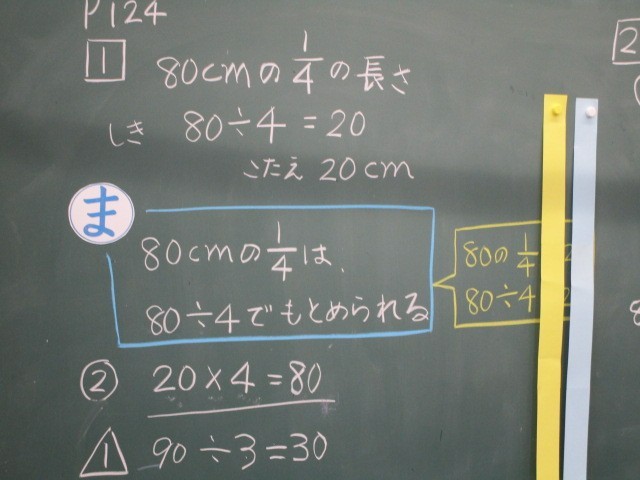 P124
1 80cmの1/4の長さ
しき 80÷4=20
こたえ 20cm
ま
80cmの1/4は、
80÷4でもとめられる
80の1/4
80÷4
② 20×4=80
1 90÷3=30
2